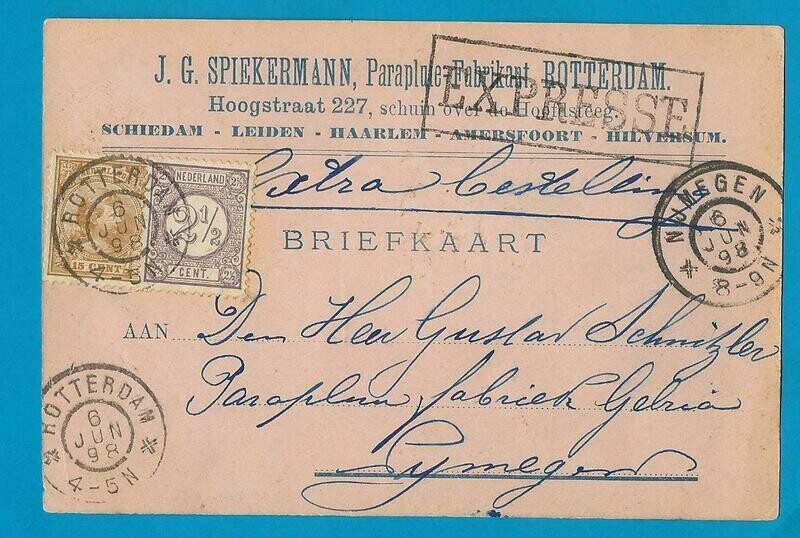 J. G. SPIEKERMANN, Parapluie-Fabrikant, ROTTERDAM.
Hoogstraat 227, schuin over de Hoofdsteeg.
SCHIEDAM - LEIDEN - HAARLEM - AMERSFOORT - HILVERSUM.
EXPRESSE
Extra bestelling
NEDERLAND
15 CENT
ROTTERDAM
6
JUN
98
4-5N
2½ NEDERLAND 2½
2½
CENT.
NIJMEGEN
6
JUN
98
8-9N
BRIEFKAART
AAN Den Heer Gustav Schnitzler
Parapluie fabriek Gelria
Nymegen
ROTTERDAM
6
JUN
98
4-5N